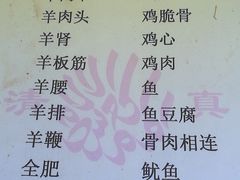 羊肉头 鸡脆骨
羊肾 鸡心
羊板筋 鸡肉
羊腰 鱼
清 真
羊排 鱼豆腐
羊鞭 骨肉相连
全肥 鱿鱼